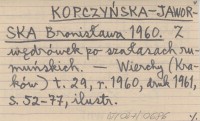 KOPCZYŃSKA-JAWOR-
SKA Bronisława 1960. Z
wędrówek po szałasach ru-
muńskich. — Wierchy (Kra-
ków) t. 29, r. 1960, druk 1961,
s. 52-77, ilustr.